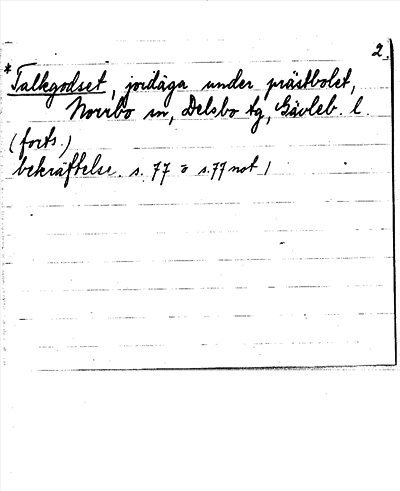 2.
* Talkgodset, jordäga under prästbolet,
Norrbo sn, Delsbo tg, Gävleb. l.
(forts.)
bekräftelse. s. 77 o s. 77 not 1